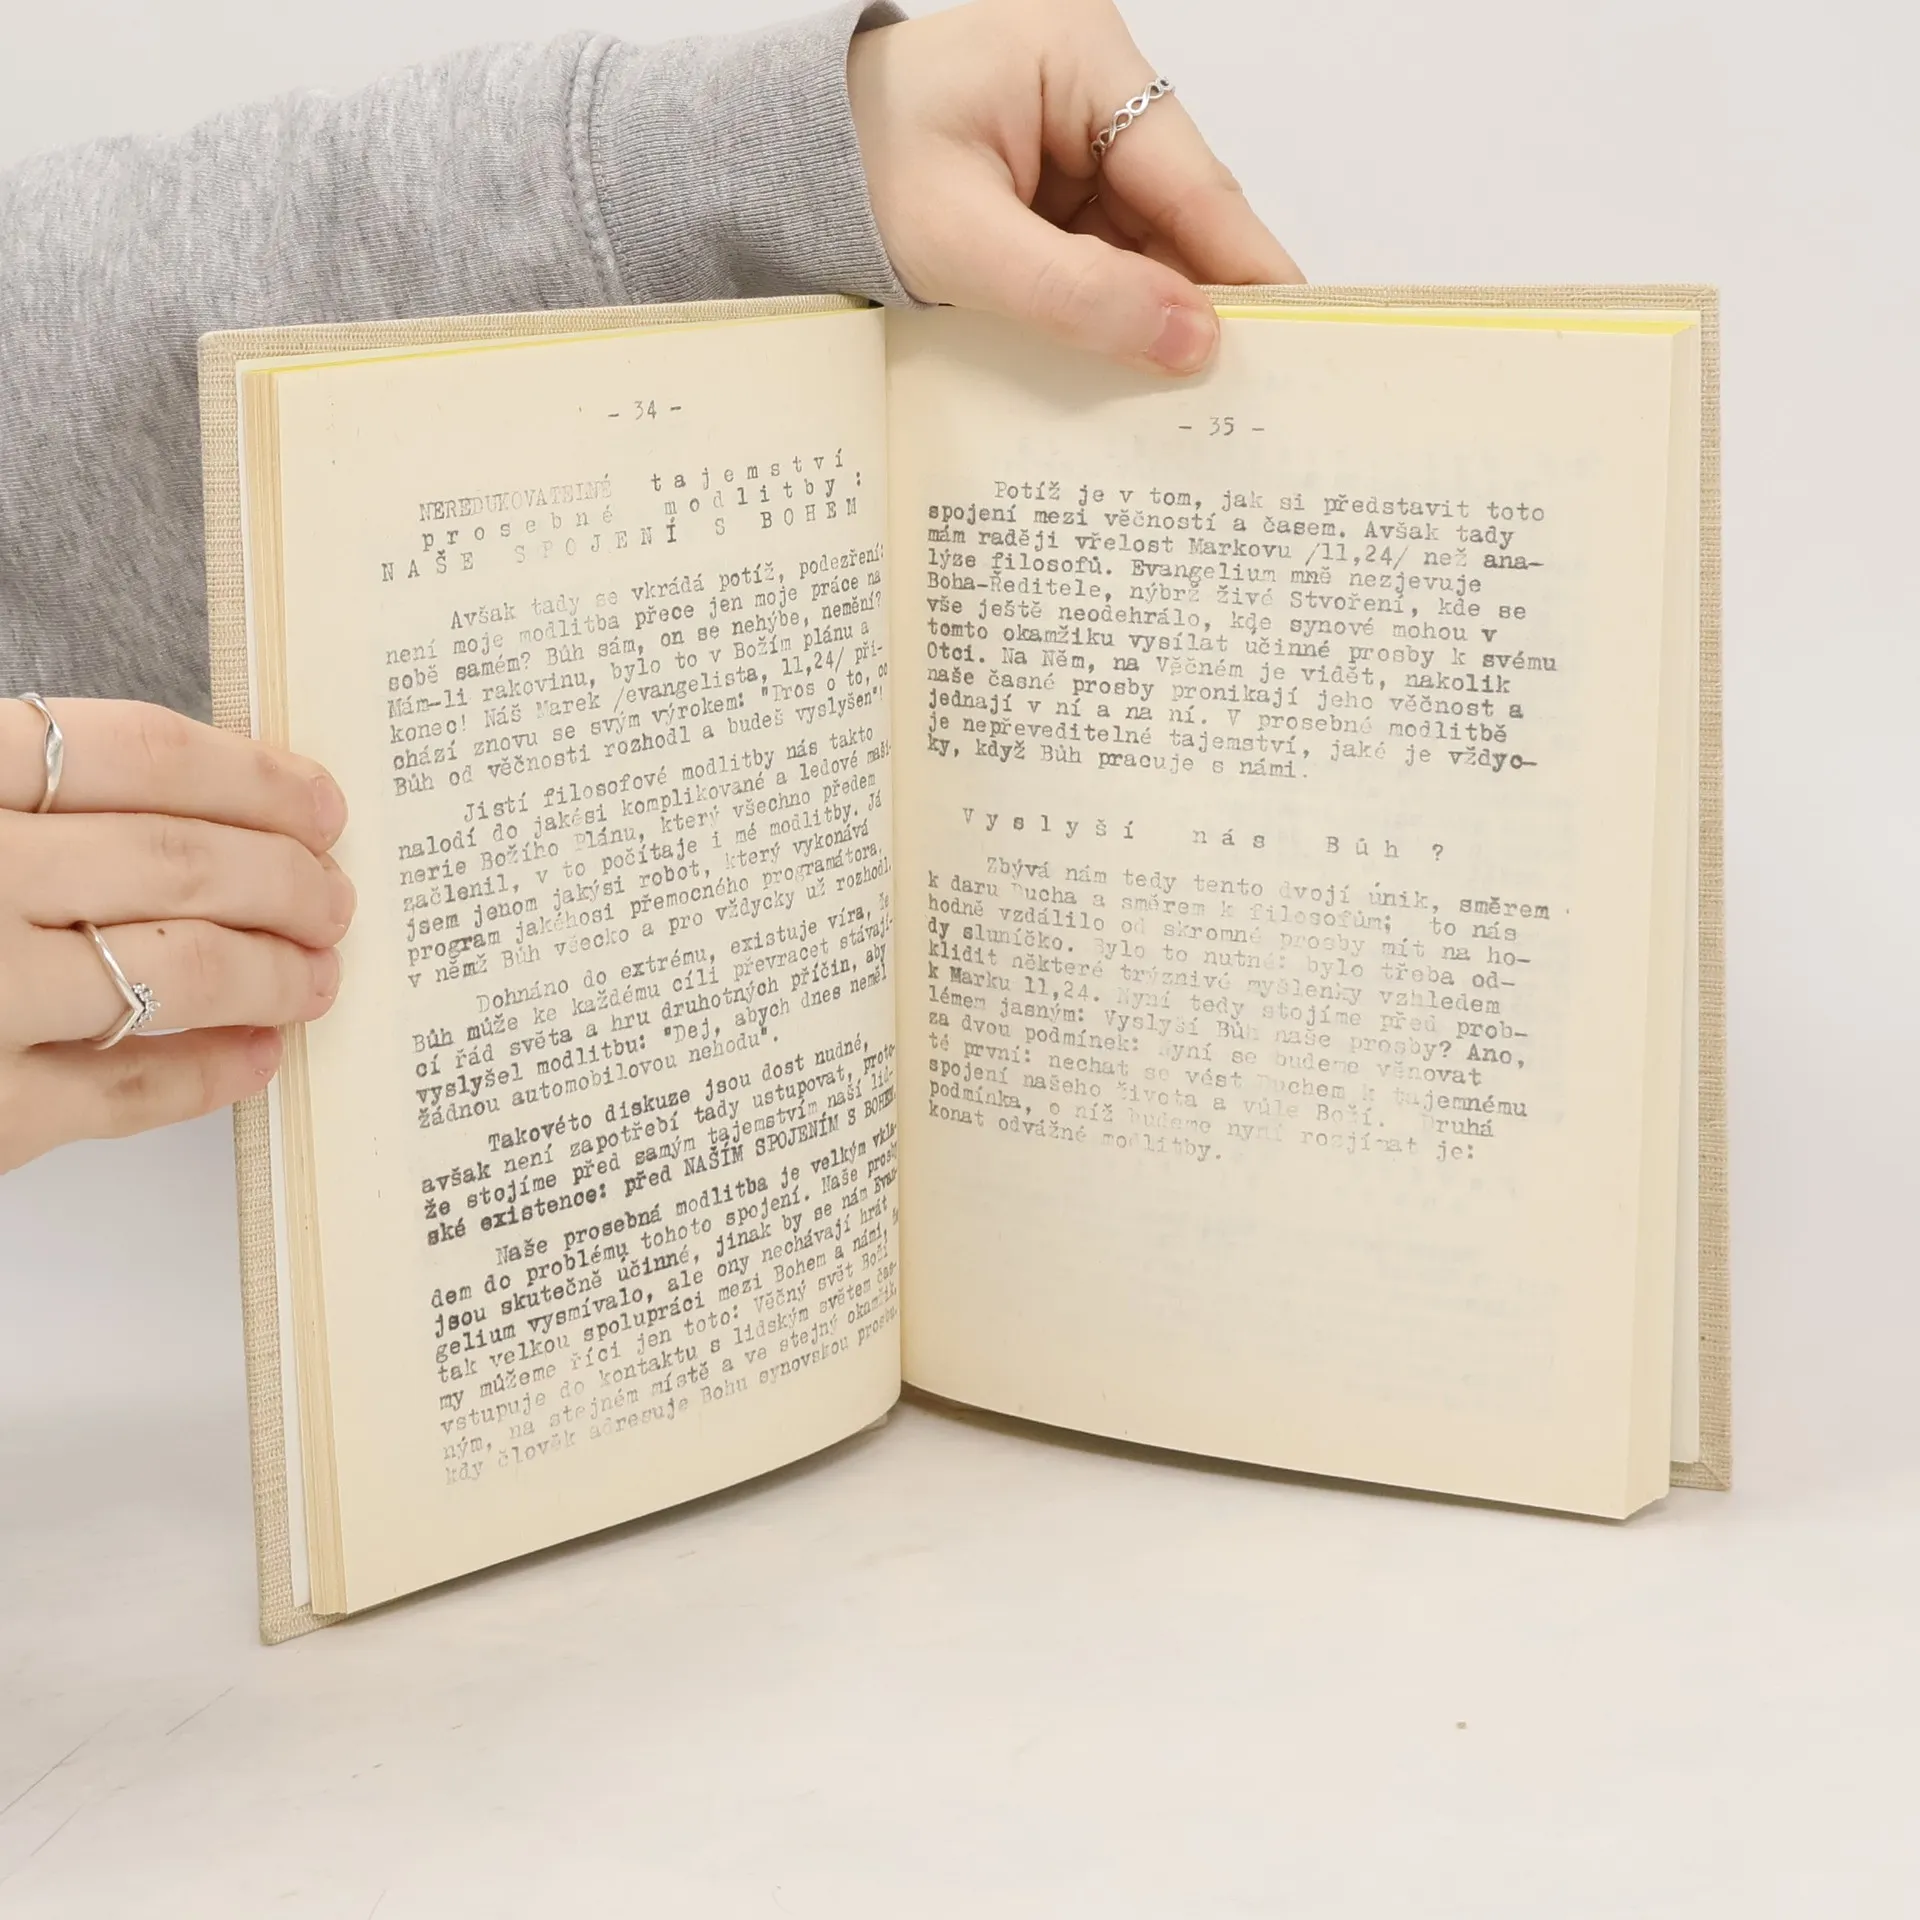 - 34 -
NEREDUKOVATELNÉ tajemství
prosebné modlitby:
NAŠE SPOJENÍ S BOHEM
Avšak tady se vkrádá potíž, podezření:
není moje modlitba přece jen moje práce na
sobě samém? Bůh sám, on se nehýbe, nemění?
Mám-li rakovinu, bylo to v Božím plánu a
konec! Náš Marek /evangelista, 11,24/ při-
chází znovu se svým výrokem: "Pros o to, co
Bůh od věčnosti rozhodl a budeš vyslyšen"!
Jistí filosofové modlitby nás takto
nalodí do jakési komplikované a ledové maši-
nerie Božího Plánu, který všechno předem
začlenil, v to počítaje i mé modlitby. Já
jsem jenom jakýsi robot, který vykonává
program jakéhosi přemocného programátora,
v němž Bůh všecko a pro vždycky už rozhodl.
Dohnáno do extrému, existuje víra, že
Bůh může ke každému cíli převracet stávají-
cí řád světa a hru druhotných příčin, aby
vyslyšel modlitbu: "Dej, abych dnes neměl
žádnou automobilovou nehodu".
Takovéto diskuze jsou dost nudné,
avšak není zapotřebí tady ustupovat, proto-
že stojíme před samým tajemstvím naší lid-
ské existence: před NAŠÍM SPOJENÍM S BOHEM.
Naše prosebná modlitba je velkým vkla-
dem do problému tohoto spojení. Naše prosby
jsou skutečně účinné, jinak by se nám Evan-
gelium vysmívalo, ale ony nechávají hrát
tak velkou spolupráci mezi Bohem a námi, že
my můžeme říci jen toto: Věčný svět Boží
vstupuje do kontaktu s lidským světem čas-
ným, na stejném místě a ve stejný okamžik,
kdy člověk adresuje Bohu synovskou prosbu.
- 35 -
Potíž je v tom, jak si představit toto
spojení mezi věčností a časem. Avšak tady
mám raději vřelost Markovu /11,24/ než ana-
lýze filosofů. Evangelium mně nezjevuje
Boha-Ředitele, nýbrž živé Stvoření, kde se
vše ještě neodehrálo, kde synové mohou v
tomto okamžiku vysílat účinné prosby k svému
Otci. Na Něm, na Věčném je vidět, nakolik
naše časné prosby pronikají jeho věčnost a
jednají v ní a na ní. V prosebné modlitbě
je nepřeveditelné tajemství, jaké je vždyc-
ky, když Bůh pracuje s námi.
Vyslyší nás Bůh ?
Zbývá nám tedy tento dvojí únik, směrem
k daru Ducha a směrem k filosofům; to nás
hodně vzdálilo od skromné prosby mít na ho-
dy sluníčko. Bylo to nutné: bylo třeba od-
klidit některé trýznivé myšlenky vzhledem
k Marku 11,24. Nyní tedy stojíme před prob-
lémem jasným: Vyslyší Bůh naše prosby? Ano,
za dvou podmínek: Nyní se budeme věnovat
té první: nechat se vést Duchem k tajemnému
spojení našeho života a vůle Boží. Druhá
podmínka, o níž budeme nyní rozjímat je:
konat odvážné modlitby.